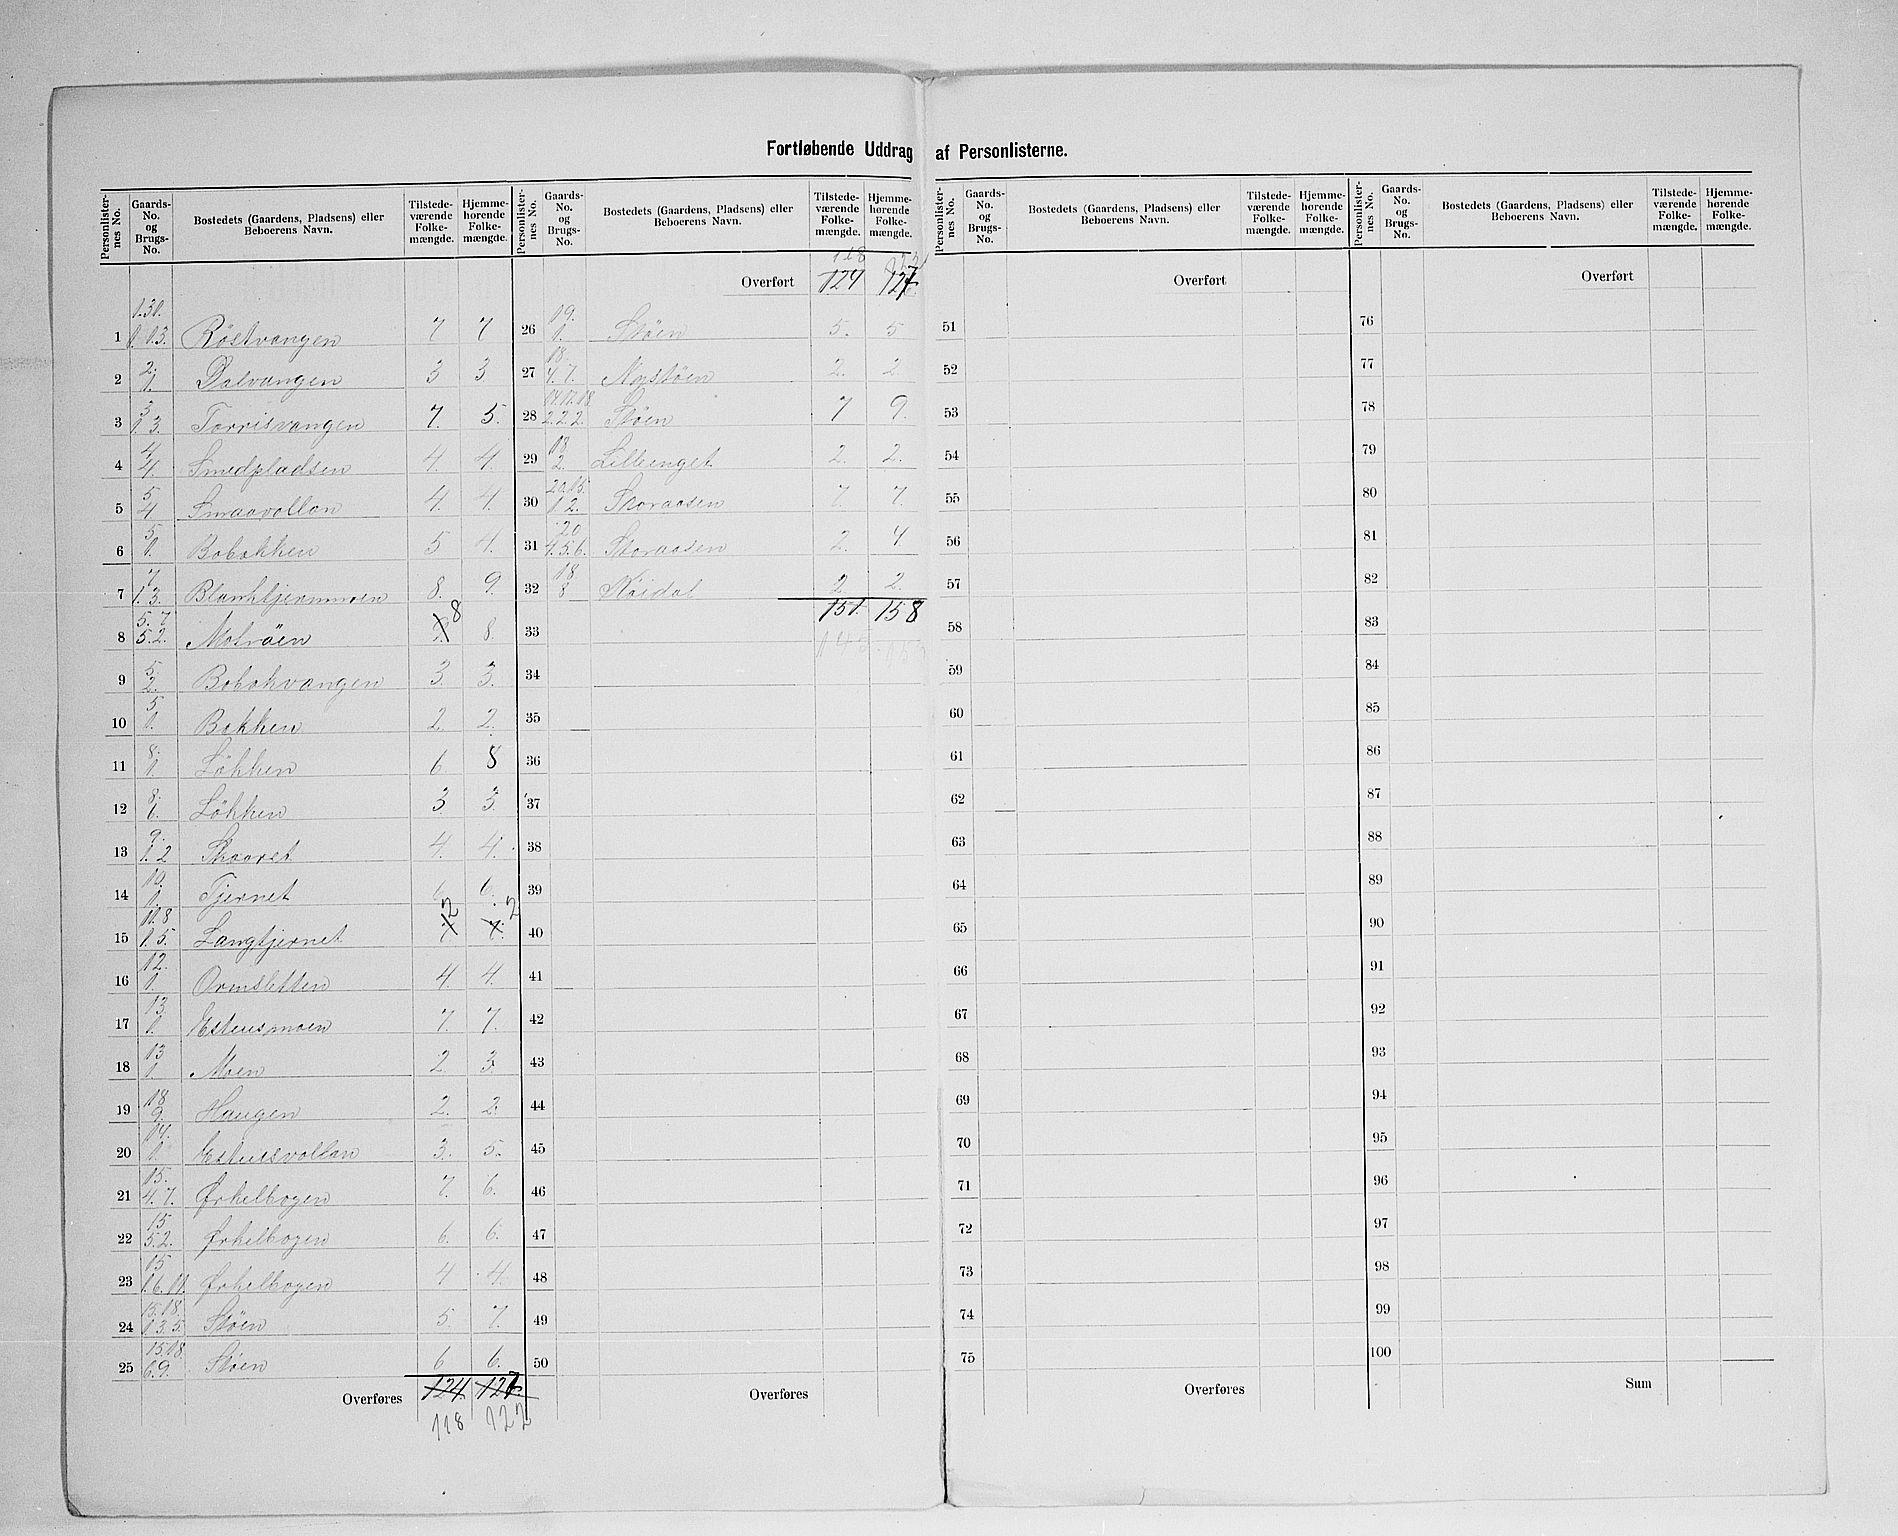 Fortløbende Uddrag af Personlisterne.
Personlisternes No. | Gaards-No. og Brugs-No. | Bostedets (Gaardens, Pladsens) eller Beboerens Navn. | Tilstedeværende Folkemængde. | Hjemmehørende Folkemængde.
1 | 1. 3. | Röstvangen | 7 | 7
2 | 2. 1. | Dalvangen | 3 | 3
3 | 3 1. 3. | Torrisvangen | 7. | 5.
4 | 4 4. | Smedpladsen | 4. | 4.
5 | 5 4 | Smaavollan | 4. | 4.
6 | 5. 1. | Bobakken | 5 | 4.
7 | 7 1. 3. | Blanktjernmoen | 8. | 9.
8 | 5. 7 5. 2. | Moröen | 8 | 8.
9 | 5 2. | Bobakvangen | 3. | 3.
10 | 5 1. | Bakken | 2 | 2.
11 | 8. 1. | Lökken | 6. | 8
12 | 8. 6. | Lökken | 3. | 3.
13 | 9. 1. 2 | Skaaret | 4. | 4.
14 | 10. 1. | Tjernet | 6 | 6.
15 | 11. 8 1. 5. | Langtjernet | 2 | 2
16 | 12. 1. | Ormsletten | 4. | 4.
17 | 13. 1. | Estensmoen | 7. | 7.
18 | 13 1. | Moen | 2 | 3.
19 | 18 9. | Haugen | 2. | 2.
20 | 14. 1. | Estensvollan | 3. | 5.
21 | 15. 4. 7. | Ørkelbogen | 7. | 6.
22 | 15 5. 2. | Ørkelbogen | 6. | 6.
23 | 15 1. 6. 11. | Ørkelbogen | 4 | 4.
24 | 15. 18. 1 3. 5. | Stöen | 5. | 7.
25 | 15. 18. 6. 9. | Stöen | 6 | 6.
Overføres | 124. | 127.
118 | 122
Personlisternes No. | Gaards-No. og Brugs-No. | Bostedets (Gaardens, Pladsens) eller Beboerens Navn. | Tilstedeværende Folkemængde. | Hjemmehørende Folkemængde.
118
Overført | 124 | 127
26 | 19. 1. | Stöen | 5. | 5
27 | 18. 4. 7. | Nystöen | 2. | 2.
28 | 14. 17. 18. 2. 2. 2. | Stöen | 7 | 9.
29 | 18 2. | Lilleenget | 2. | 2.
30 | 20. 15. 1 2. | Storaasen | 7. | 7.
31 | 20 4. 5. 6. | Storaasen | 2. | 4
32 | 18 8 | Nöidal | 2 | 2.
151. | 158
33 | 145
34
35
36
37
38
39
40
41
42
43
44
45
46
47
48
49
50
Overføres
Personlisternes No. | Gaards-No. og Brugs-No. | Bostedets (Gaardens, Pladsens) eller Beboerens Navn. | Tilstedeværende Folkemængde. | Hjemmehørende Folkemængde.
Overført
51
52
53
54
55
56
57
58
59
60
61
62
63
64
65
66
67
68
69
70
71
72
73
74
75
Overføres
Personlisternes No. | Gaards-No. og Brugs-No. | Bostedets (Gaardens, Pladsens) eller Beboerens Navn. | Tilstedeværende Folkemængde. | Hjemmehørende Folkemængde.
Overført
76
77
78
79
80
81
82
83
84
85
86
87
88
89
90
91
92
93
94
95
96
97
98
99
100
Sum